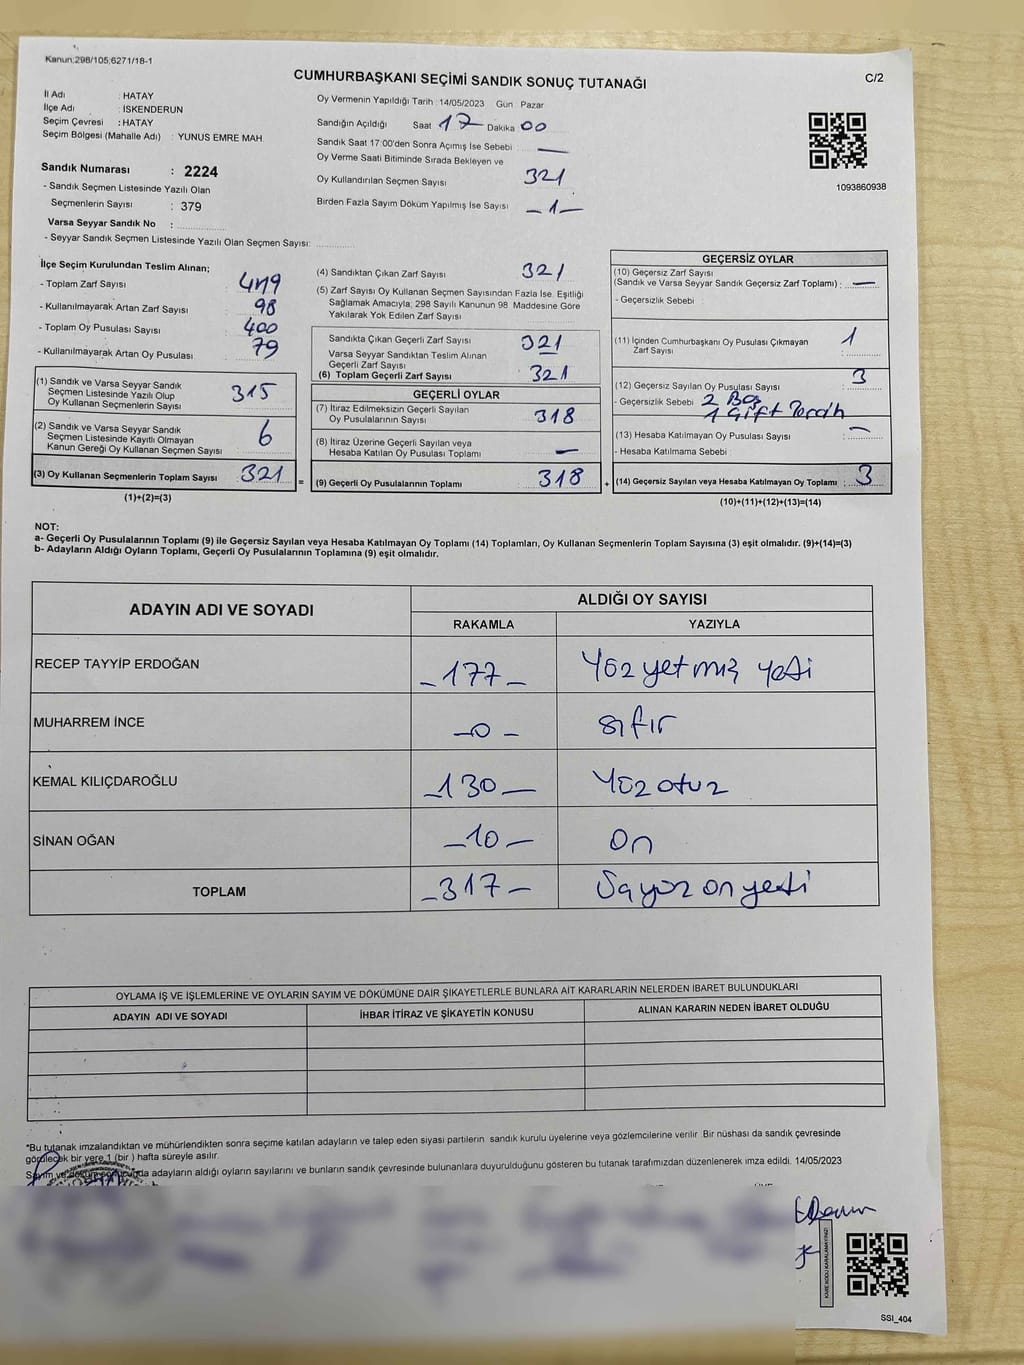 Kanun:298/105;6271/18-1
CUMHURBAŞKANI SEÇİMİ SANDIK SONUÇ TUTANAĞI
C/2
İl Adı : HATAY
İlçe Adı : İSKENDERUN
Seçim Çevresi : HATAY
Seçim Bölgesi (Mahalle Adı) : YUNUS EMRE MAH.
Oy Vermenin Yapıldığı Tarih :14/05/2023 Gün Pazar
Sandığın Açıldığı Saat 17 Dakika 00
Sandık Saat 17:00'den Sonra Açımış İse Sebebi —
Oy Verme Saati Bitiminde Sırada Bekleyen ve
Oy Kullandırılan Seçmen Sayısı 321
Birden Fazla Sayım Döküm Yapılmış İse Sayısı -1-
1093860938
Sandık Numarası : 2224
- Sandık Seçmen Listesinde Yazılı Olan
Seçmenlerin Sayısı : 379
Varsa Seyyar Sandık No :
- Seyyar Sandık Seçmen Listesinde Yazılı Olan Seçmen Sayısı:
İlçe Seçim Kurulundan Teslim Alınan;
- Toplam Zarf Sayısı 419
- Kullanılmayarak Artan Zarf Sayısı 98
- Toplam Oy Pusulası Sayısı 400
- Kullanılmayarak Artan Oy Pusulası 79
(1) Sandık ve Varsa Seyyar Sandık
Seçmen Listesinde Yazılı Olup
Oy Kullanan Seçmenlerin Sayısı 315
(2) Sandık ve Varsa Seyyar Sandık
Seçmen Listesinde Kayıtlı Olmayan
Kanun Gereği Oy Kullanan Seçmen Sayısı 6
(3) Oy Kullanan Seçmenlerin Toplam Sayısı 321 =
(1)+(2)=(3)
(4) Sandıktan Çıkan Zarf Sayısı 321
(5) Zarf Sayısı Oy Kullanan Seçmen Sayısından Fazla İse. Eşitliği
Sağlamak Amacıyla, 298 Sayılı Kanunun 98. Maddesine Göre
Yakılarak Yok Edilen Zarf Sayısı
Sandıkta Çıkan Geçerli Zarf Sayısı 321
Varsa Seyyar Sandıktan Teslim Alınan
Geçerli Zarf Sayısı
(6) Toplam Geçerli Zarf Sayısı 321
GEÇERLİ OYLAR
(7) İtiraz Edilmeksizin Geçerli Sayılan
Oy Pusulalarının Sayısı 318
(8) İtiraz Üzerine Geçerli Sayılan veya
Hesaba Katılan Oy Pusulası Toplamı —
(9) Geçerli Oy Pusulalarının Toplamı 318 +
GEÇERSİZ OYLAR
(10) Geçersiz Zarf Sayısı
(Sandık ve Varsa Seyyar Sandık Geçersiz Zarf Toplamı) : —
- Geçersizlik Sebebi :
(11) İçinden Cumhurbaşkanı Oy Pusulası Çıkmayan
Zarf Sayısı : 1
(12) Geçersiz Sayılan Oy Pusulası Sayısı : 3
- Geçersizlik Sebebi 2 Boş
1 Çift Tercih
(13) Hesaba Katılmayan Oy Pusulası Sayısı : —
- Hesaba Katılmama Sebebi :
(14) Geçersiz Sayılan veya Hesaba Katılmayan Oy Toplamı : 3
(10)+(11)+(12)+(13)=(14)
NOT:
a- Geçerli Oy Pusulalarının Toplamı (9) ile Geçersiz Sayılan veya Hesaba Katılmayan Oy Toplamı (14) Toplamları, Oy Kullanan Seçmenlerin Toplam Sayısına (3) eşit olmalıdır. (9)+(14)=(3)
b- Adayların Aldığı Oyların Toplamı, Geçerli Oy Pusulalarının Toplamına (9) eşit olmalıdır.
ADAYIN ADI VE SOYADI
ALDIĞI OY SAYISI
RAKAMLA YAZIYLA
RECEP TAYYİP ERDOĞAN -177- Yüz yetmiş yedi
MUHARREM İNCE -0- sıfır
KEMAL KILIÇDAROĞLU -130- Yüz otuz
SİNAN OĞAN -10- On
TOPLAM -317- Üçyüz on yedi
OYLAMA İŞ VE İŞLEMLERİNE VE OYLARIN SAYIM VE DÖKÜMÜNE DAİR ŞİKAYETLERLE BUNLARA AİT KARARLARIN NELERDEN İBARET BULUNDUKLARI
ADAYIN ADI VE SOYADI İHBAR İTİRAZ VE ŞİKAYETİN KONUSU ALINAN KARARIN NEDEN İBARET OLDUĞU
*Bu tutanak imzalandıktan ve mühürlendikten sonra seçime katılan adayların ve talep eden siyasi partilerin sandık kurulu üyelerine veya gözlemcilerine verilir. Bir nüshası da sandık çevresinde
görülecek bir yere 1 (bir ) hafta süreyle asılır.
Sayım ve döküm sonucunda adayların aldığı oyların sayılarını ve bunların sandık çevresinde bulunanlara duyurulduğunu gösteren bu tutanak tarafımızdan düzenlenerek imza edildi. 14/05/2023
KARE KODU KARALAMAYINIZ!
SSİ_404